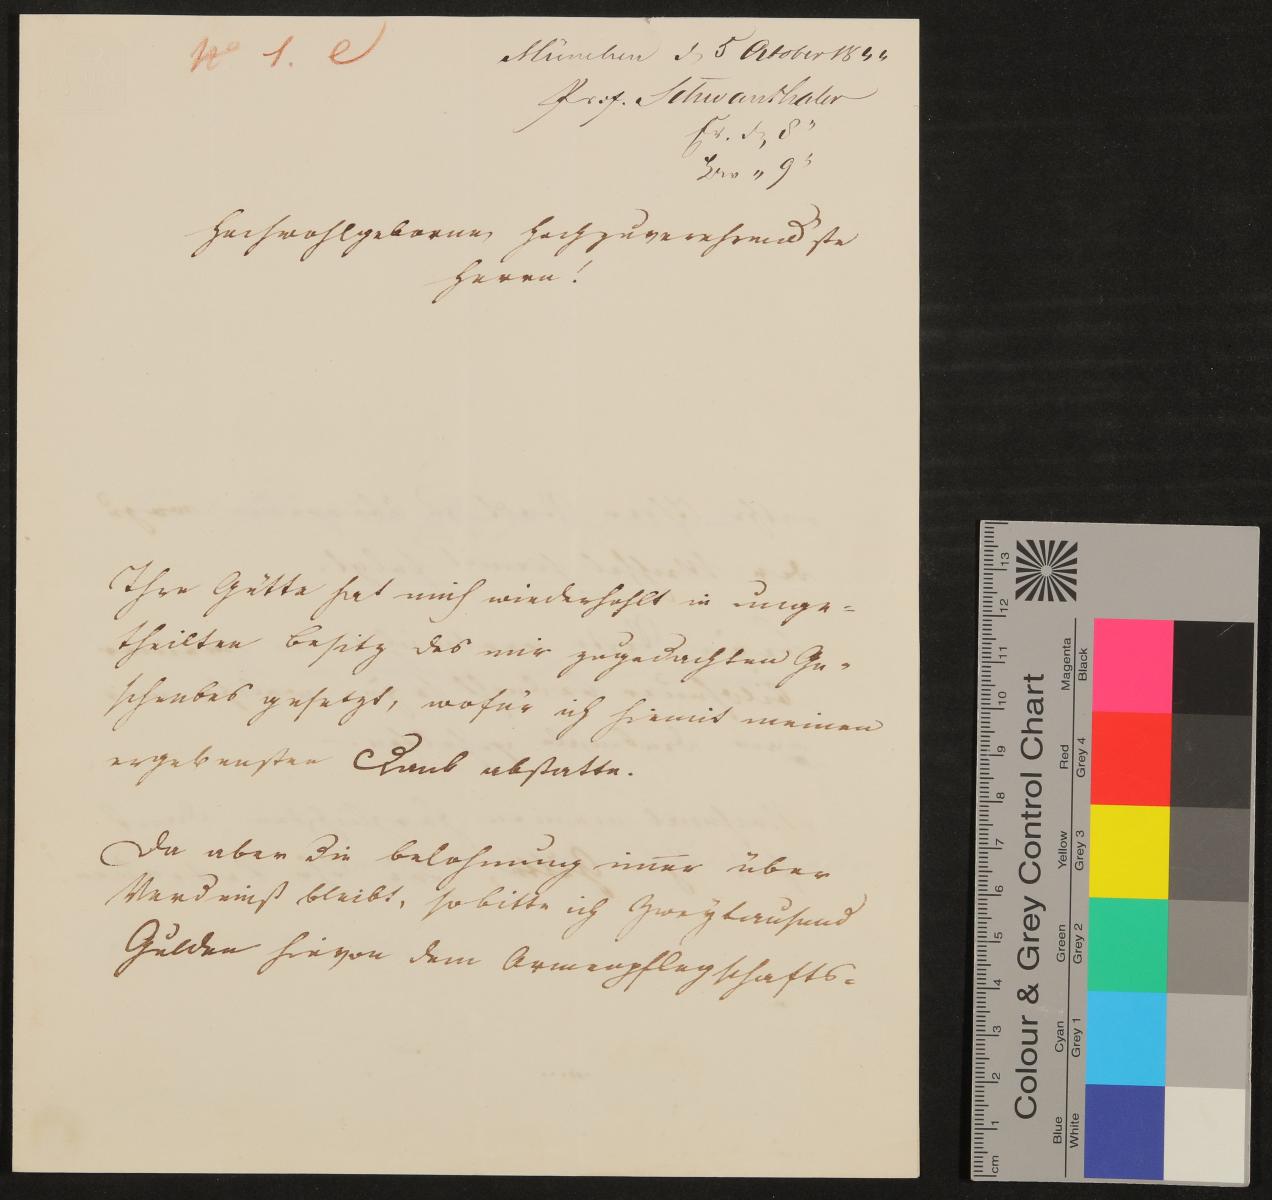 No 1. e
München d 5 October 1844
Prof. Schwanthaler
Fr. d, 8"
" 9"
Hochwohlgeborne, Hochzuverehrendste
Herren!
Ihre Gütte hat mich wiederhohlt in unge=
theilten besitz des mir zugedachten Ge=
schenkes gesetzt, wofür ich hiemit meinen
ergebensten Dank abstatte.
Da aber die belohnung im̄er über
Verdeinst bleibt, so bitte ich Zweÿtausend
Gulden hievon dem Armenpflegschafts=
cm 1 2 3 4 5 6 7 8 9 10 11 12 13
Colour & Grey Control Chart
Blue Cyan Green Yellow Red Magenta
White Grey 1 Grey 2 Grey 3 Grey 4 Black